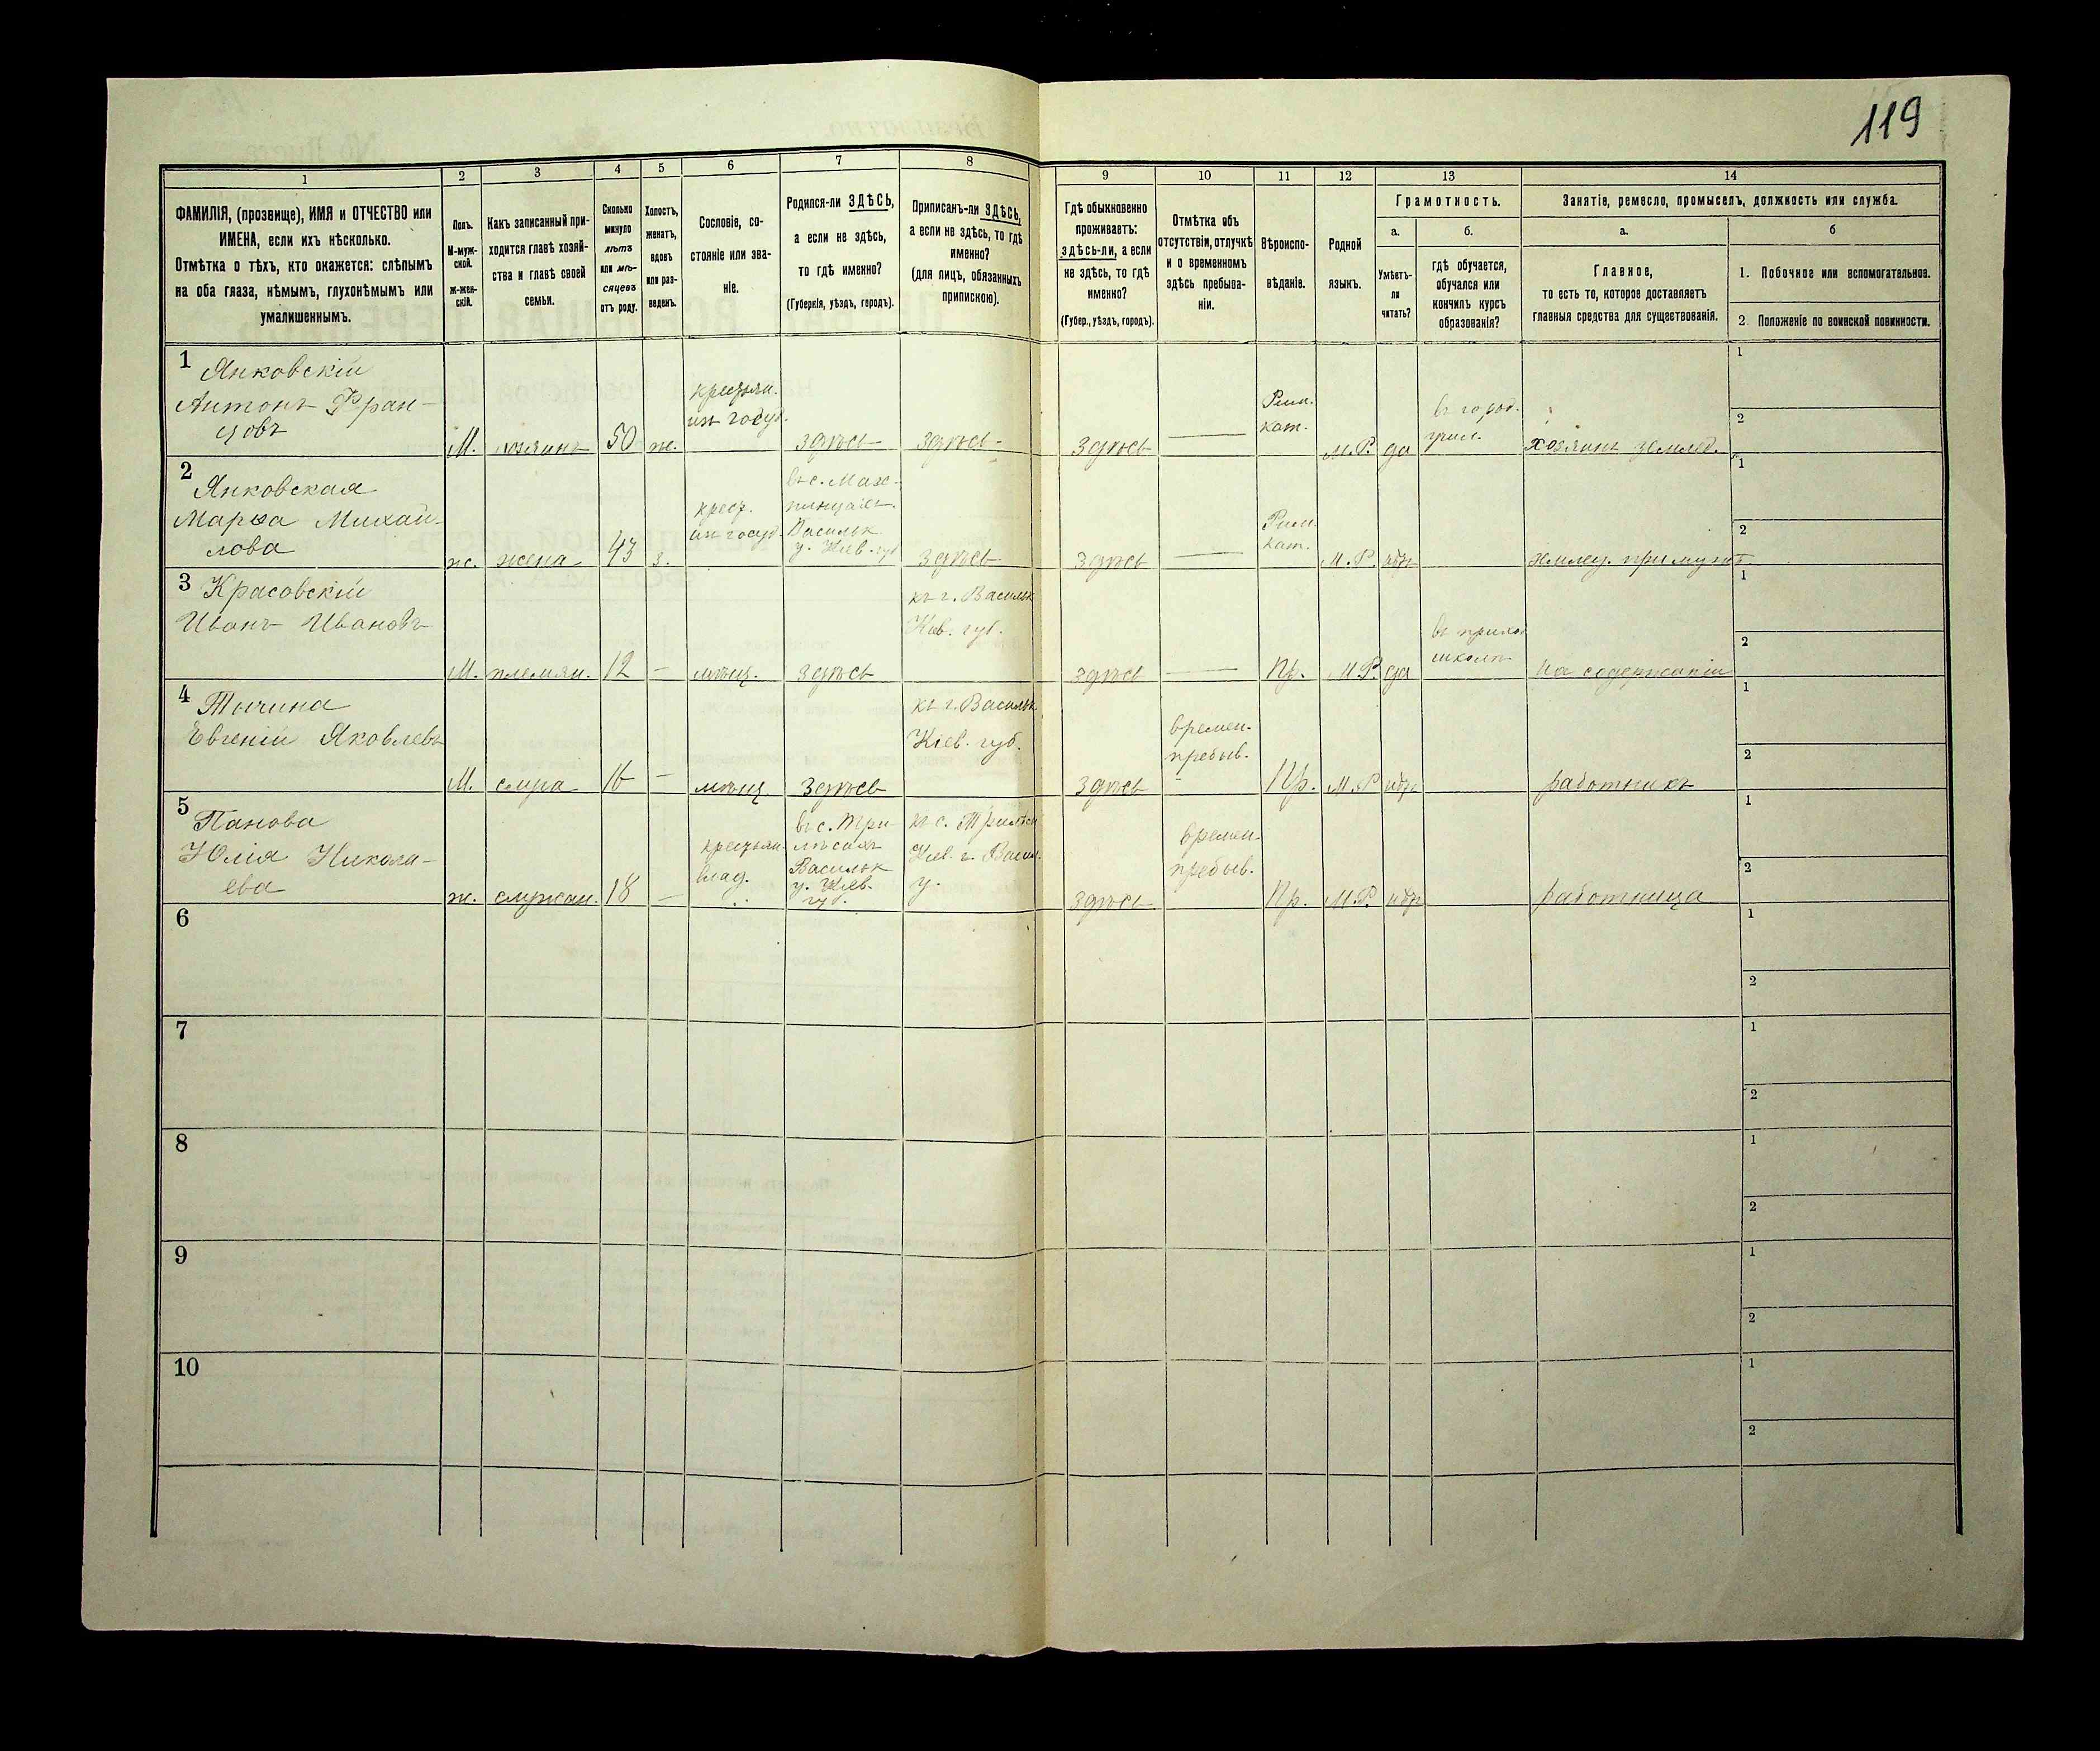 119
1
2
3
4
5
6
7
8
9
10
11
12
13
14
ФАМИЛІЯ, (прозвище), ИМЯ и ОТЧЕСТВО или
ИМЕНА, если ихъ нѣсколько.
Отмѣтка о тѣхъ, кто окажется: слѣпымъ
на оба глаза, нѣмымъ, глухонѣмымъ или
умалишеннымъ.
Полъ.
М-муж-
ской.
ж-жен-
скій.
Какъ записанный при-
ходится главѣ хозяй-
ства и главѣ своей
семьи.
Сколько
минуло
лѣтъ
или мѣ-
сяцевъ
отъ роду.
Холостъ,
женатъ,
вдовъ
или раз-
веденъ.
Сословіе, со-
стояніе или зва-
ніе.
Родился-ли ЗДѢСЬ,
а если не здѣсь,
то гдѣ именно?
(Губернія, уѣздъ, городъ).
Приписанъ-ли ЗДѢСЬ,
а если не здѣсь, то гдѣ
именно?
(для лицъ, обязанныхъ
припискою).
Гдѣ обыкновенно
проживаетъ:
здѣсь-ли, а если
не здѣсь, то гдѣ
именно?
(Губер., уѣздъ, городъ).
Отмѣтка объ
отсутствіи, отлучкѣ
и о временномъ
здѣсь пребыва-
ніи.
Вѣроиспо-
вѣданіе.
Родной
языкъ.
Грамотность.
а.
Умѣетъ-
ли
читать?
б.
гдѣ обучается,
обучался или
кончилъ курсъ
образованія?
Занятіе, ремесло, промыселъ, должность или служба.
а.
Главное,
то есть то, которое доставляетъ
главныя средства для существованія.
б
1. Побочное или вспомогательное.
2. Положеніе по воинской повинности.
1
Янковскій
Антонъ Фран-
цовъ
М.
хозяинъ
50
ж.
крестьян.
из госуд.
здѣсь
здѣсь
здѣсь
Рим.
кат.
М.Р.
да
въ город.
учил.
хозяинъ землед.
1
2
2
Янковская
Марѳа Михай-
лова
ж.
жена
43
з.
крест.
из госуд.
Васильк
у. Кіев. губ
здѣсь
здѣсь
Рим.
кат.
М.Р.
нѣт
1
2
3
Красовскій
Иванъ Ивановъ
М.
племян.
12
мѣщ.
здѣсь
къ г. Васильк
Кіев. губ.
здѣсь
Пр.
М.Р.
да
въ прихо
школѣ
на содержаніи
1
2
4
Тычина
Евгеній Яковлевъ
М.
слуга
16
мѣщ.
здѣсь
къ г. Васильк
Кіев. губ.
здѣсь
времен.
пребыв.
Пр.
М.Р.
нѣт
работникъ
1
2
5
Панова
Юлія Никола-
ева
ж.
служан.
18
крестьян.
влад.
въ с. Три-
лѣсахъ
Васильк
у. Кіев.
губ.
къ с. Трилѣси
Кіев. г. Васил.
у.
здѣсь
времен.
пребыв.
Пр.
М.Р.
нѣт
работница
1
2
6
1
2
7
1
2
8
1
2
9
1
2
10
1
2